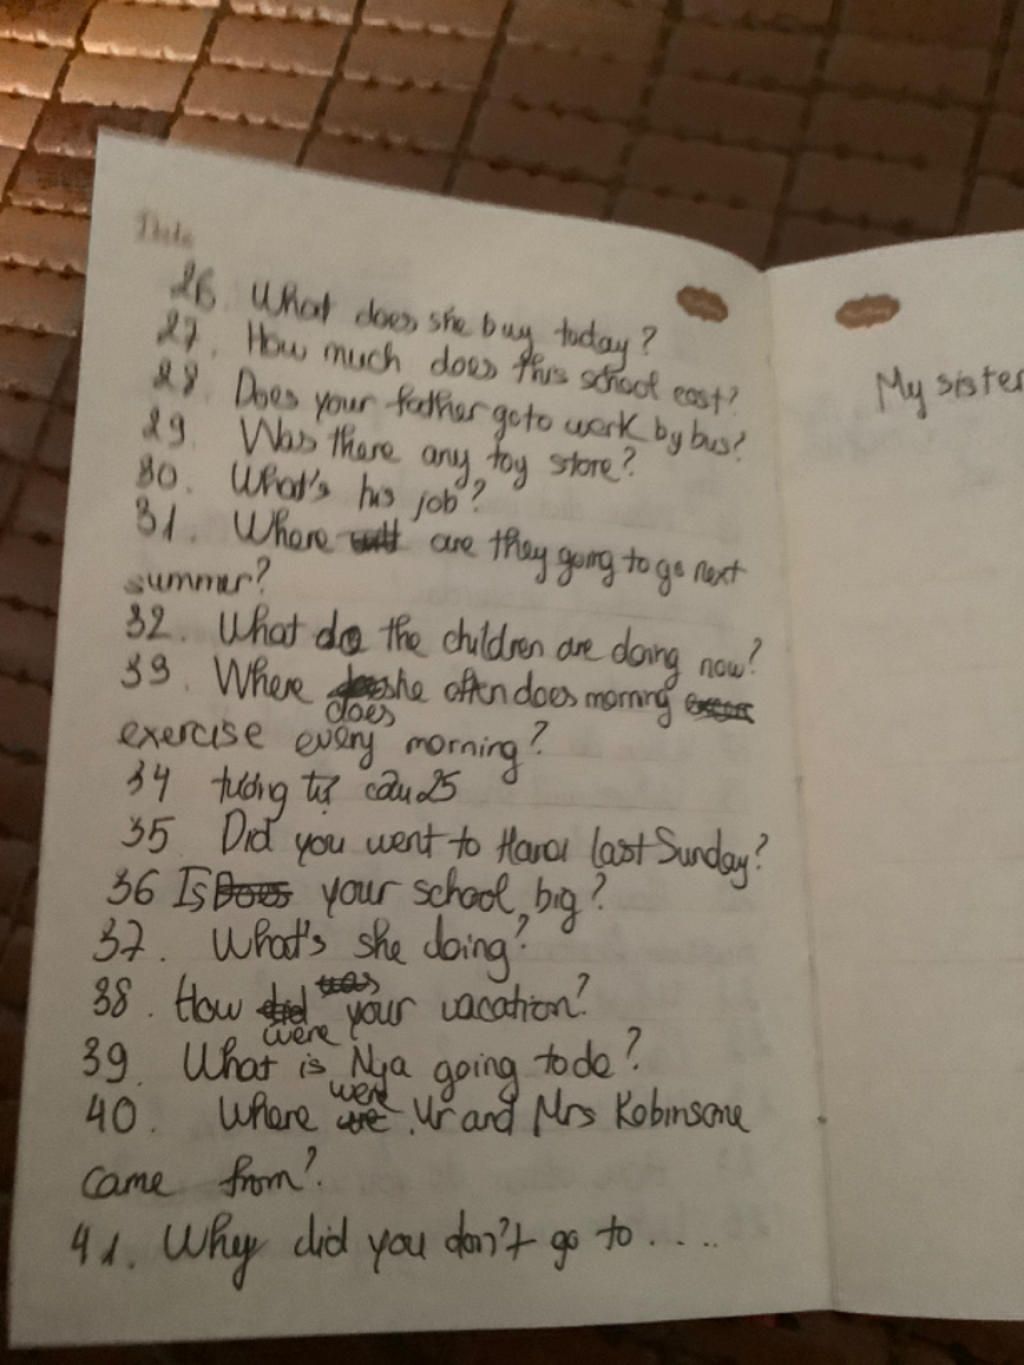 Date
26. What does she buy today?
27. How much does this school cost?
28. Does your father go to work by bus?
29. Was there any toy store?
30. What's his job?
31. Where are they going to go next
summer?
32. What do the children are doing now?
33. Where does she often does morning
exercise every morning?
34 tương tự câu 25
35 Did you went to Hanoi last Sunday?
36 Is your school big?
37. What's she doing?
38. How were your vacation?
39. What is Nga going to do?
40. Where were Mr and Mrs Robinsone
came from?
41. Why did you don't go to....
My sister